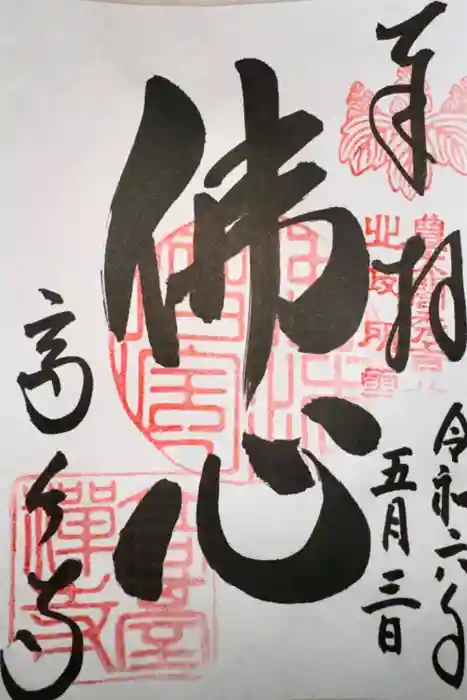 奉拝
令和六年
五月三日
佛心
高台寺
高臺
禪寺